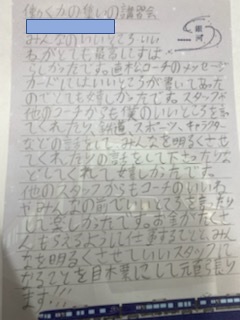 僕のくみの集いの講習会
みんなのいいところいい
わがとても最高しすば
らしかったです。直木コーチのメッセージ
カードにはいいところが書いてあった
のでとても嬉しかったです。スタッフが
他のコーチからも僕のいいところを言っ
てくれたり、鉄道、スポーツ、キャラクター
などの話をして、みんなを明るくさせ
てくれたりの話をして下さったりな
どしてくれて嬉しかったです。
他のスタッフからもコーチのいいね
やみんなの前でいいところを言ったり
して楽しかったです。お金がたくさ
んもらえるようにして仕事することとみん
なを明るくさせていいスタッフに
なることを目標にして元気に張り
ます!!!
銀河